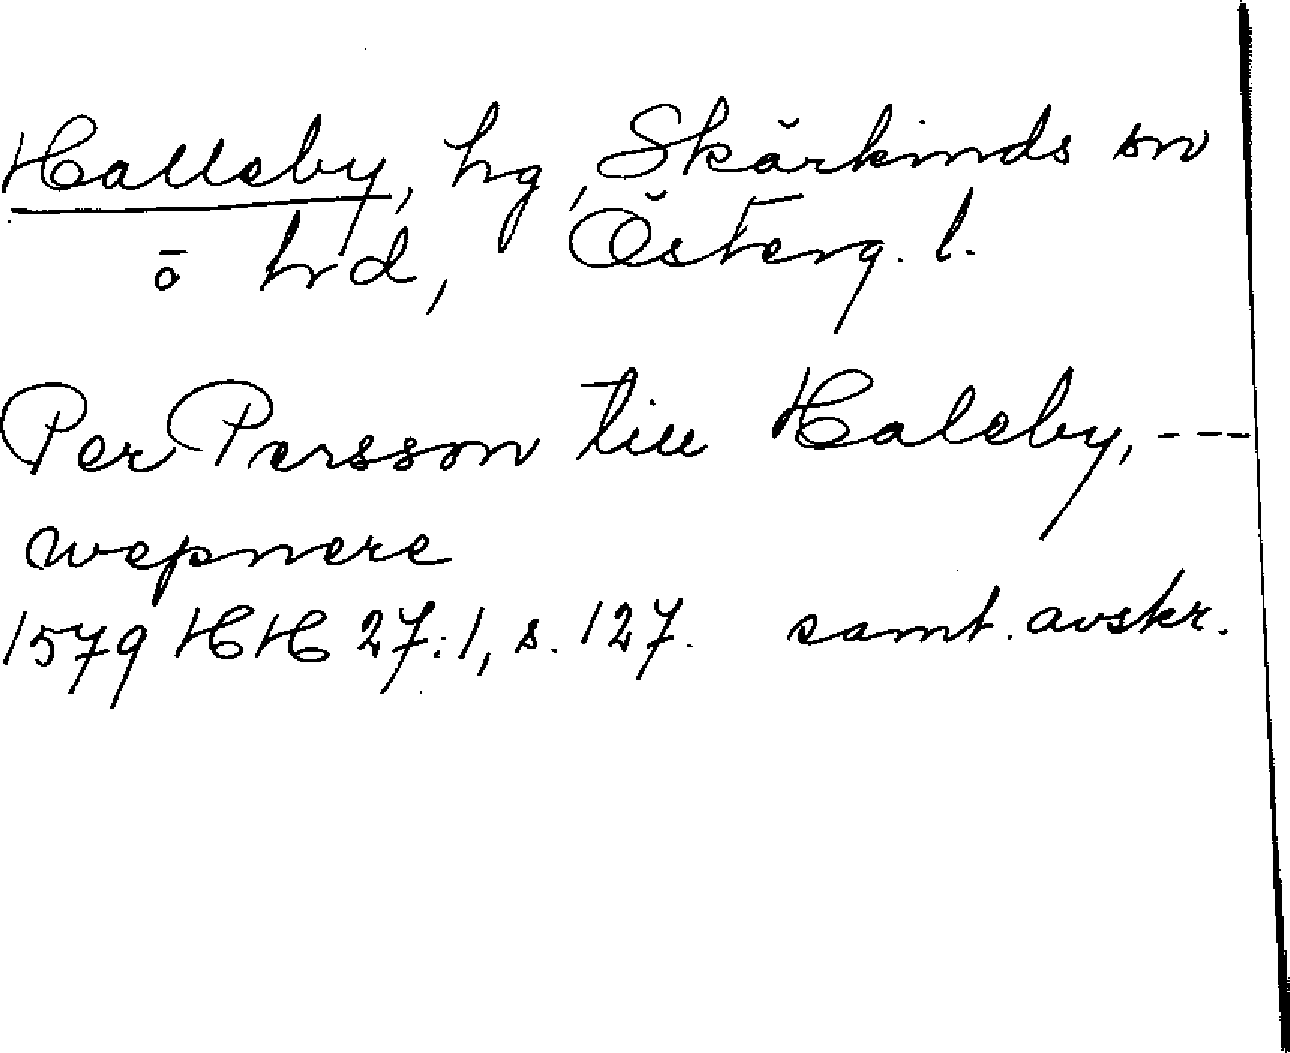 Halleby, hg, Skärkinds sn
o hrd, Österg. l.
Per Persson till Haleby, ---
wepnere
1579 HH 27:1, s. 127. samt. avskr.